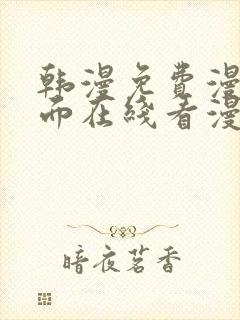 韩漫免费漫
而在线看漫
暗夜茗香